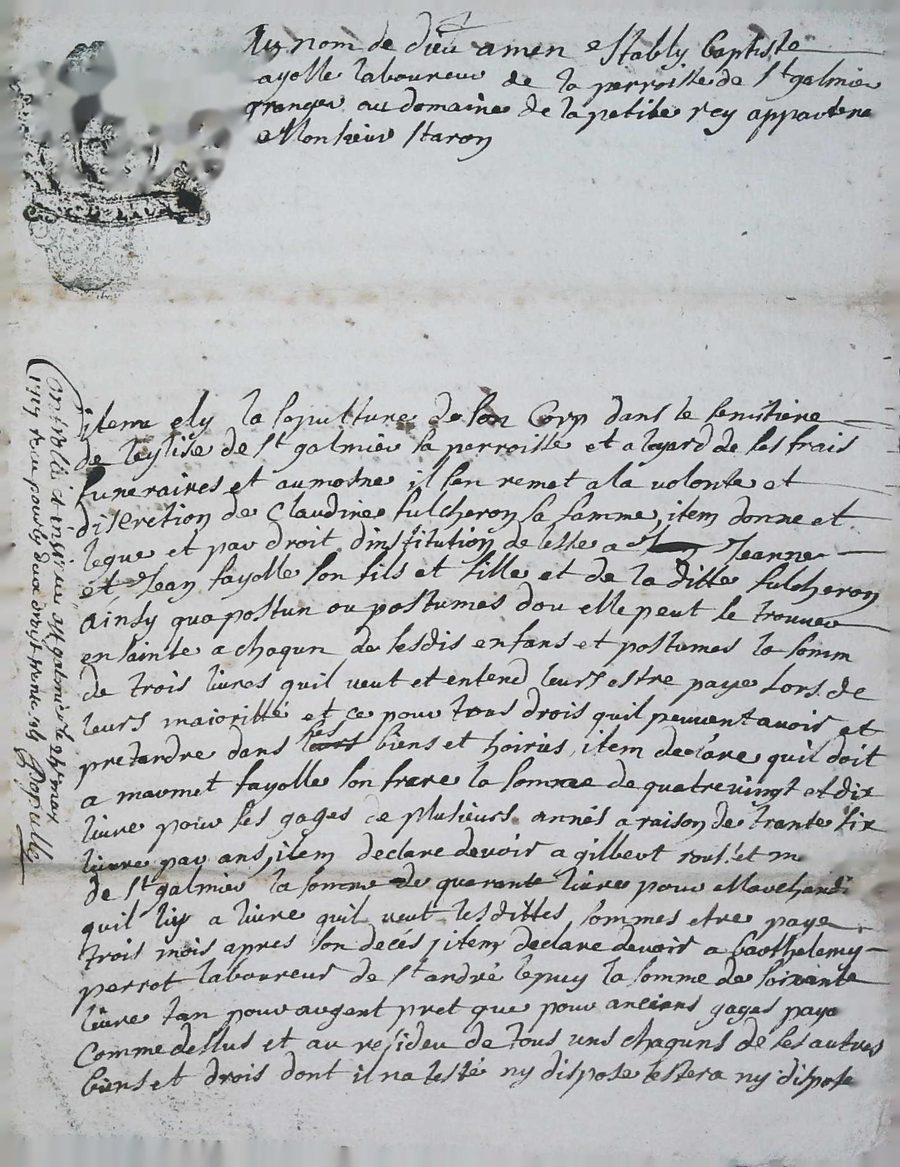 Au nom de dieu amen estably baptiste
ayolle laboureur de la perroisse de st galmier
granger au domaine de la petitte rey appartena
a Monsieur staron
item ely la sepulture de son Corp dans le semitiere
de leglise de st galmier sa perroisse et a legard de ses frais
funeraires et aumosne il sen remet a la volonte et
discretion de Claudine fulcheron sa famme, item donne et
legue et par droit dinstitution de lesse a Jeanne
et Jean fayolle son fils et fille et de la ditte fulcheron
ainsy qua postun ou postumes dou elle peut se trouver
ensainte a chaqun de sesdis enfans et postumes la somm
de trois livres quil veut et entend leurs estre paye Lors de
leurs maioritté et ce pour tous drois quil peuvent avoir et
pretandre dans ses biens et hoiries, item declare quil doit
a maumet fayolle son frare la somme de quatre vingt et dix
livre pour ses gages de plusieurs annés a raison de trante six
livre par ans, item declare devoir a gilbert
de st galmier la somme de quarante livre pour Marchandi
quil luy a livre quil veut lesdittes sommes etre paye
trois mois apres son decés, item declare devoir a barthelemy
perrot laboureur de st andré le puy la somme de soixante
livre tan pour argent pret que pour anciens gages paye
Comme dessus et au resideu de tous uns chaquns de ses autres
biens et drois dont il na testé ny dispose testera ny dispose
Controllé et insinué a st galmier le 24e may
1717 Reçu pour les deux droits trente